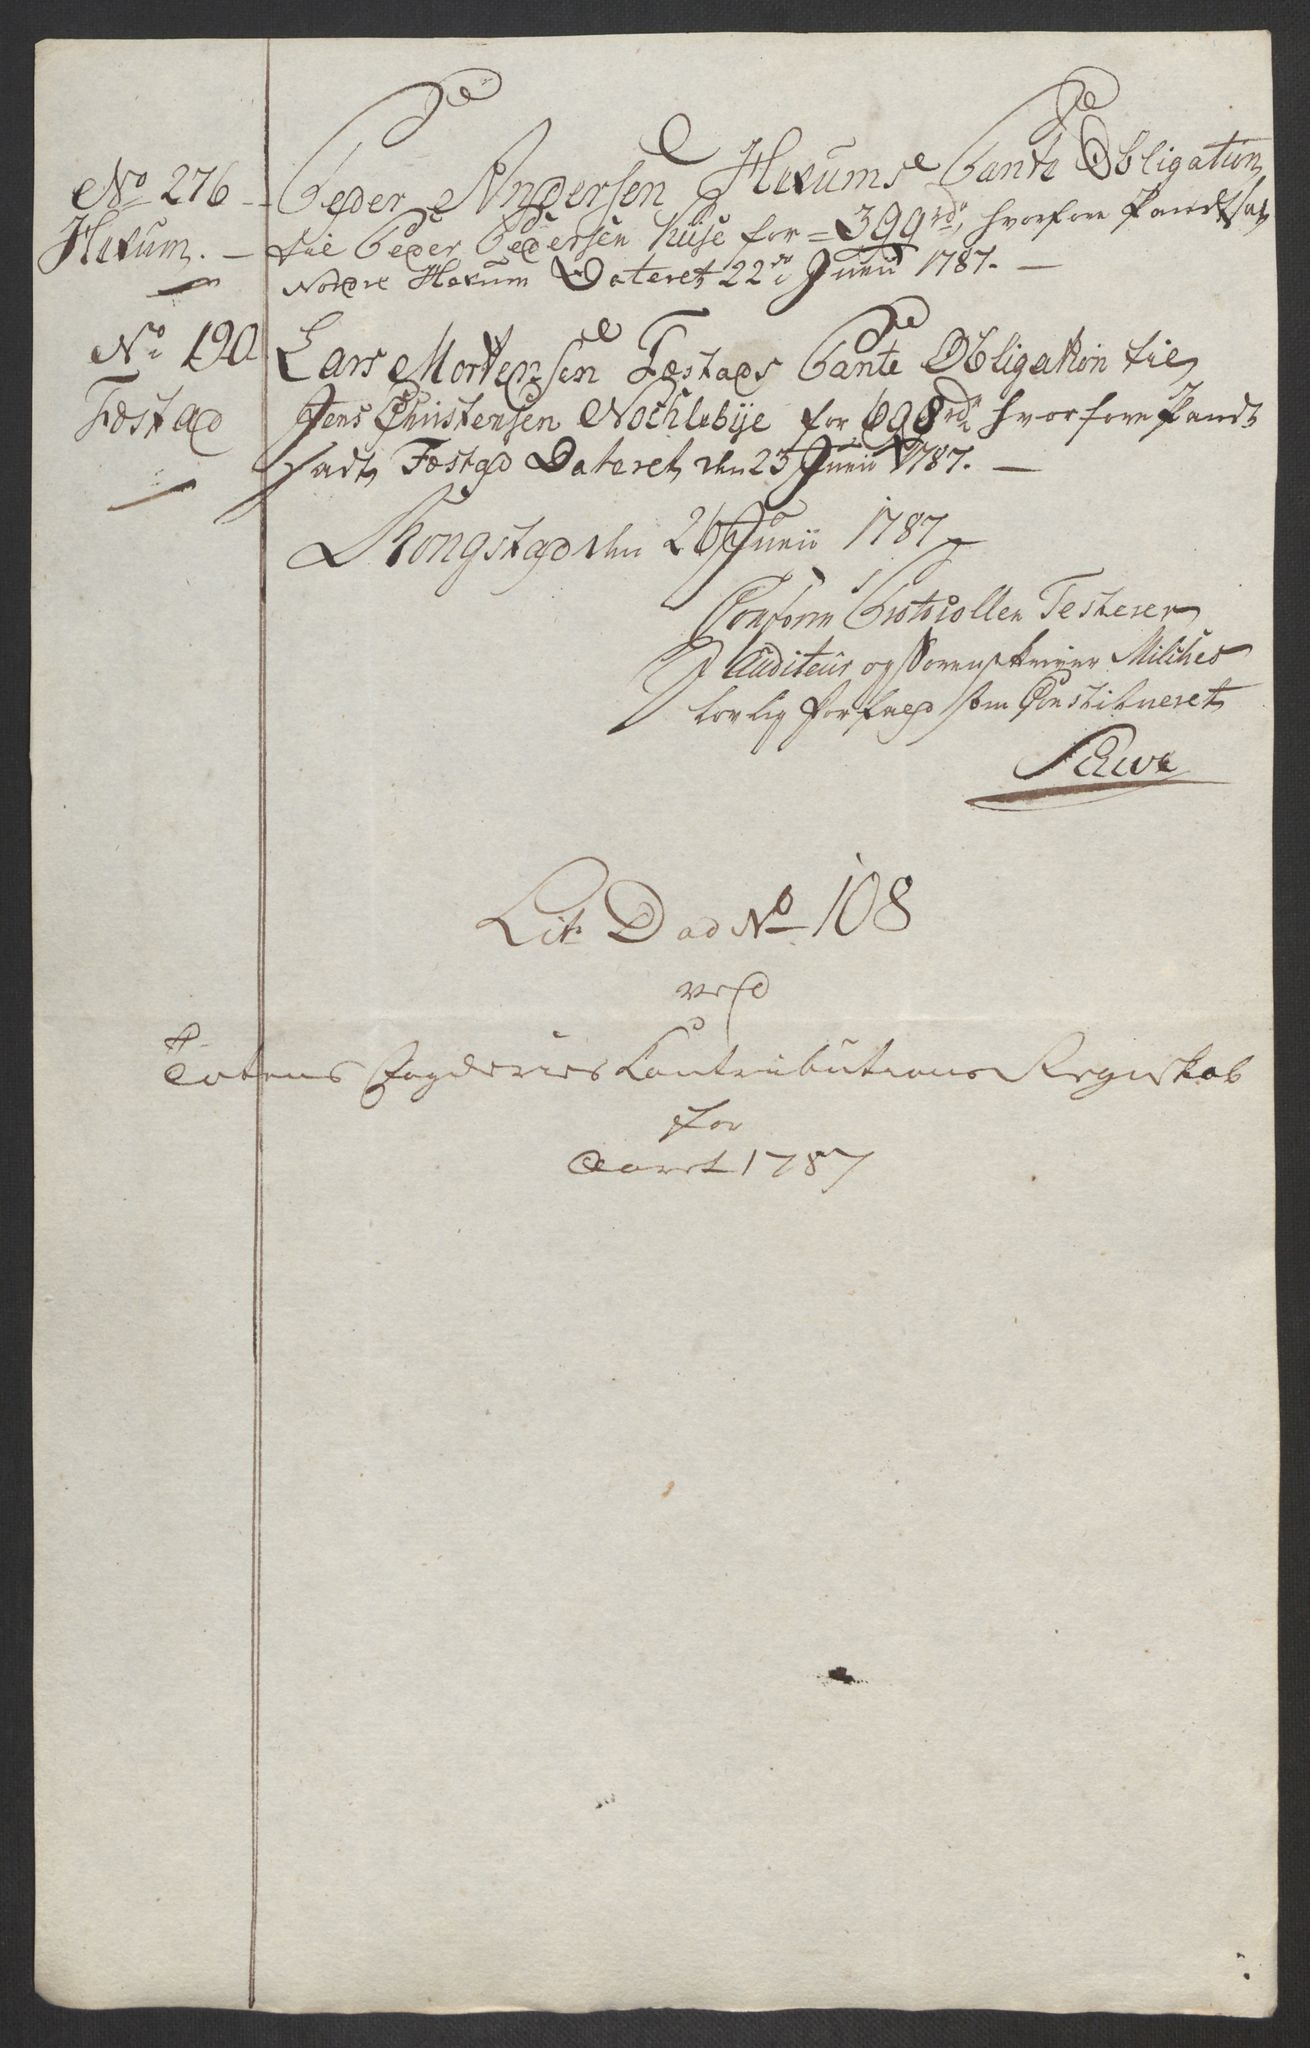 No 276 - Peder Andersen Hexums Pante Obligation
Hexum. - til Peder Pedersen Huse for = 399 rdr, hvorfore Pandtsat
Nordre Hexum Dateret 22de Junii 1787. —
No 190 Lars Mortensen Fæstads Pante Obligation til
Fæstad Jens Christensen Nochlebÿe for 698 rdr hvorfore Pandt
sadt Fæstad Dateret den 23 Junii 1787. —
Kongstad den 26 Junii 1787
Conform Protocollen Testerer
Auditeur og Sorenskriver Milches
lovlig forfald som Constitueret
Lit. D ad No 108
ved
Totens Fogderies Contributions Regnskab
for
Aaret 1787